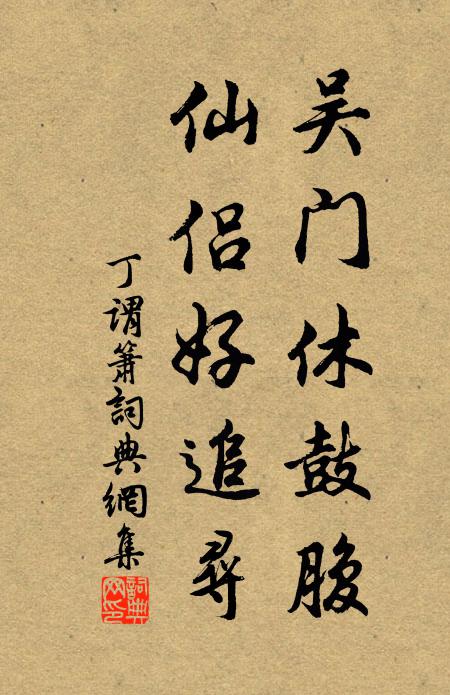 吴门休鼓腹
仙侣好追寻
丁谓箫詞典網集
詞典网印